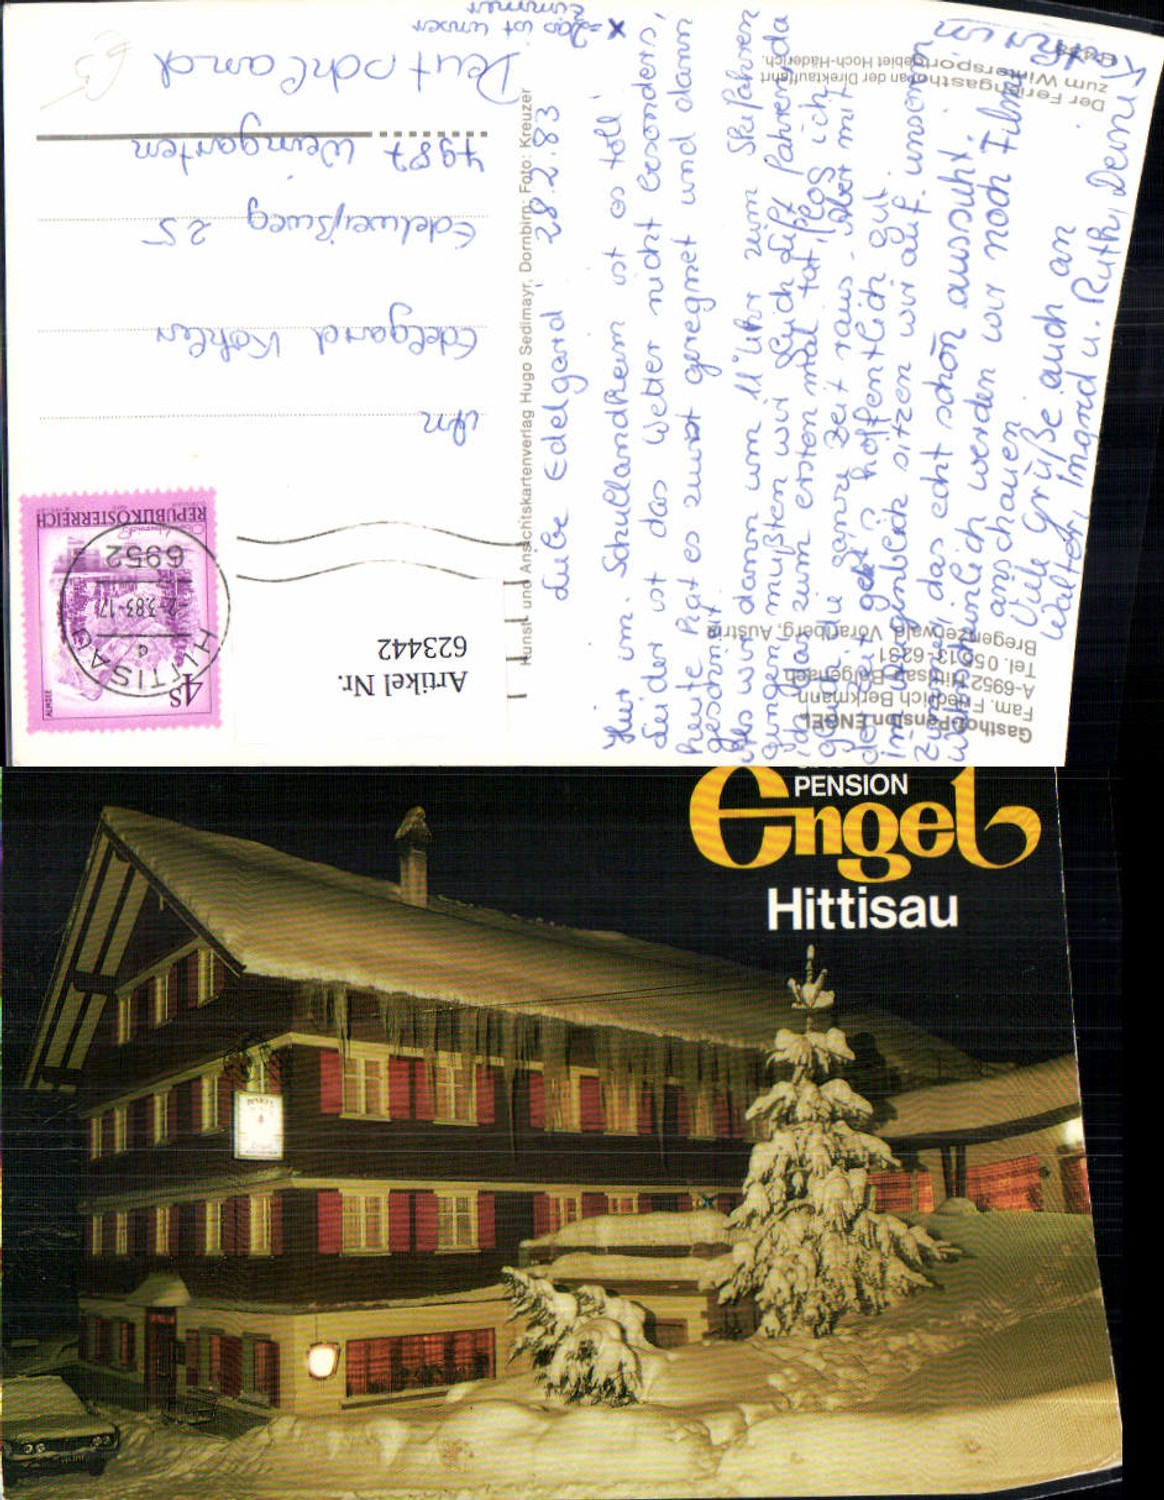 =Das ist unser
Zimmer
Deutschland
7987 Weingarten
Edelweißweg 25
Edelgard Kohler
An
REPUBLIK ÖSTERREICH
4S
ALMSEE
6952
HITTISAU
Artikel Nr.
623442
Kunst- und Ansichtskartenverlag Hugo Sedlmayr, Dornbirn; Foto: Kreuzer
Liebe Edelgard! 28.2.83
Hier im Schullandheim ist es toll!
Leider ist das Wetter nicht besonders,
heute hat es zuerst geregnet und dann
geschneit.
Als wir dann um 11 Uhr zum Skifahren
gingen mußten wir gleich Lift fahren, da
ich das zum ersten mal tat, flog ich
gleich die ganze Zeit raus. Aber mit
der Zeit geht's hoffentlich gut.
im Augenblick sitzen wir auf unserem
Zimmer, das echt schön aussieht.
Wahrscheinlich werden wir noch Filme
anschauen
Viele Grüße auch an
Walter, Ingrid u. Ruth, Deine
Kathrin
Der Feriengasthof an der Direktauffahrt
zum Wintersportgebiet Hoch-Häderich.
Gasthof-Pension ENGEL
Fam. Friedrich Berkmann
A-6952 Hittisau-Bolgenach
Tel. 0 55 13 - 6231
Bregenzerwald, Vorarlberg, Austria
PENSION
Engel
Hittisau